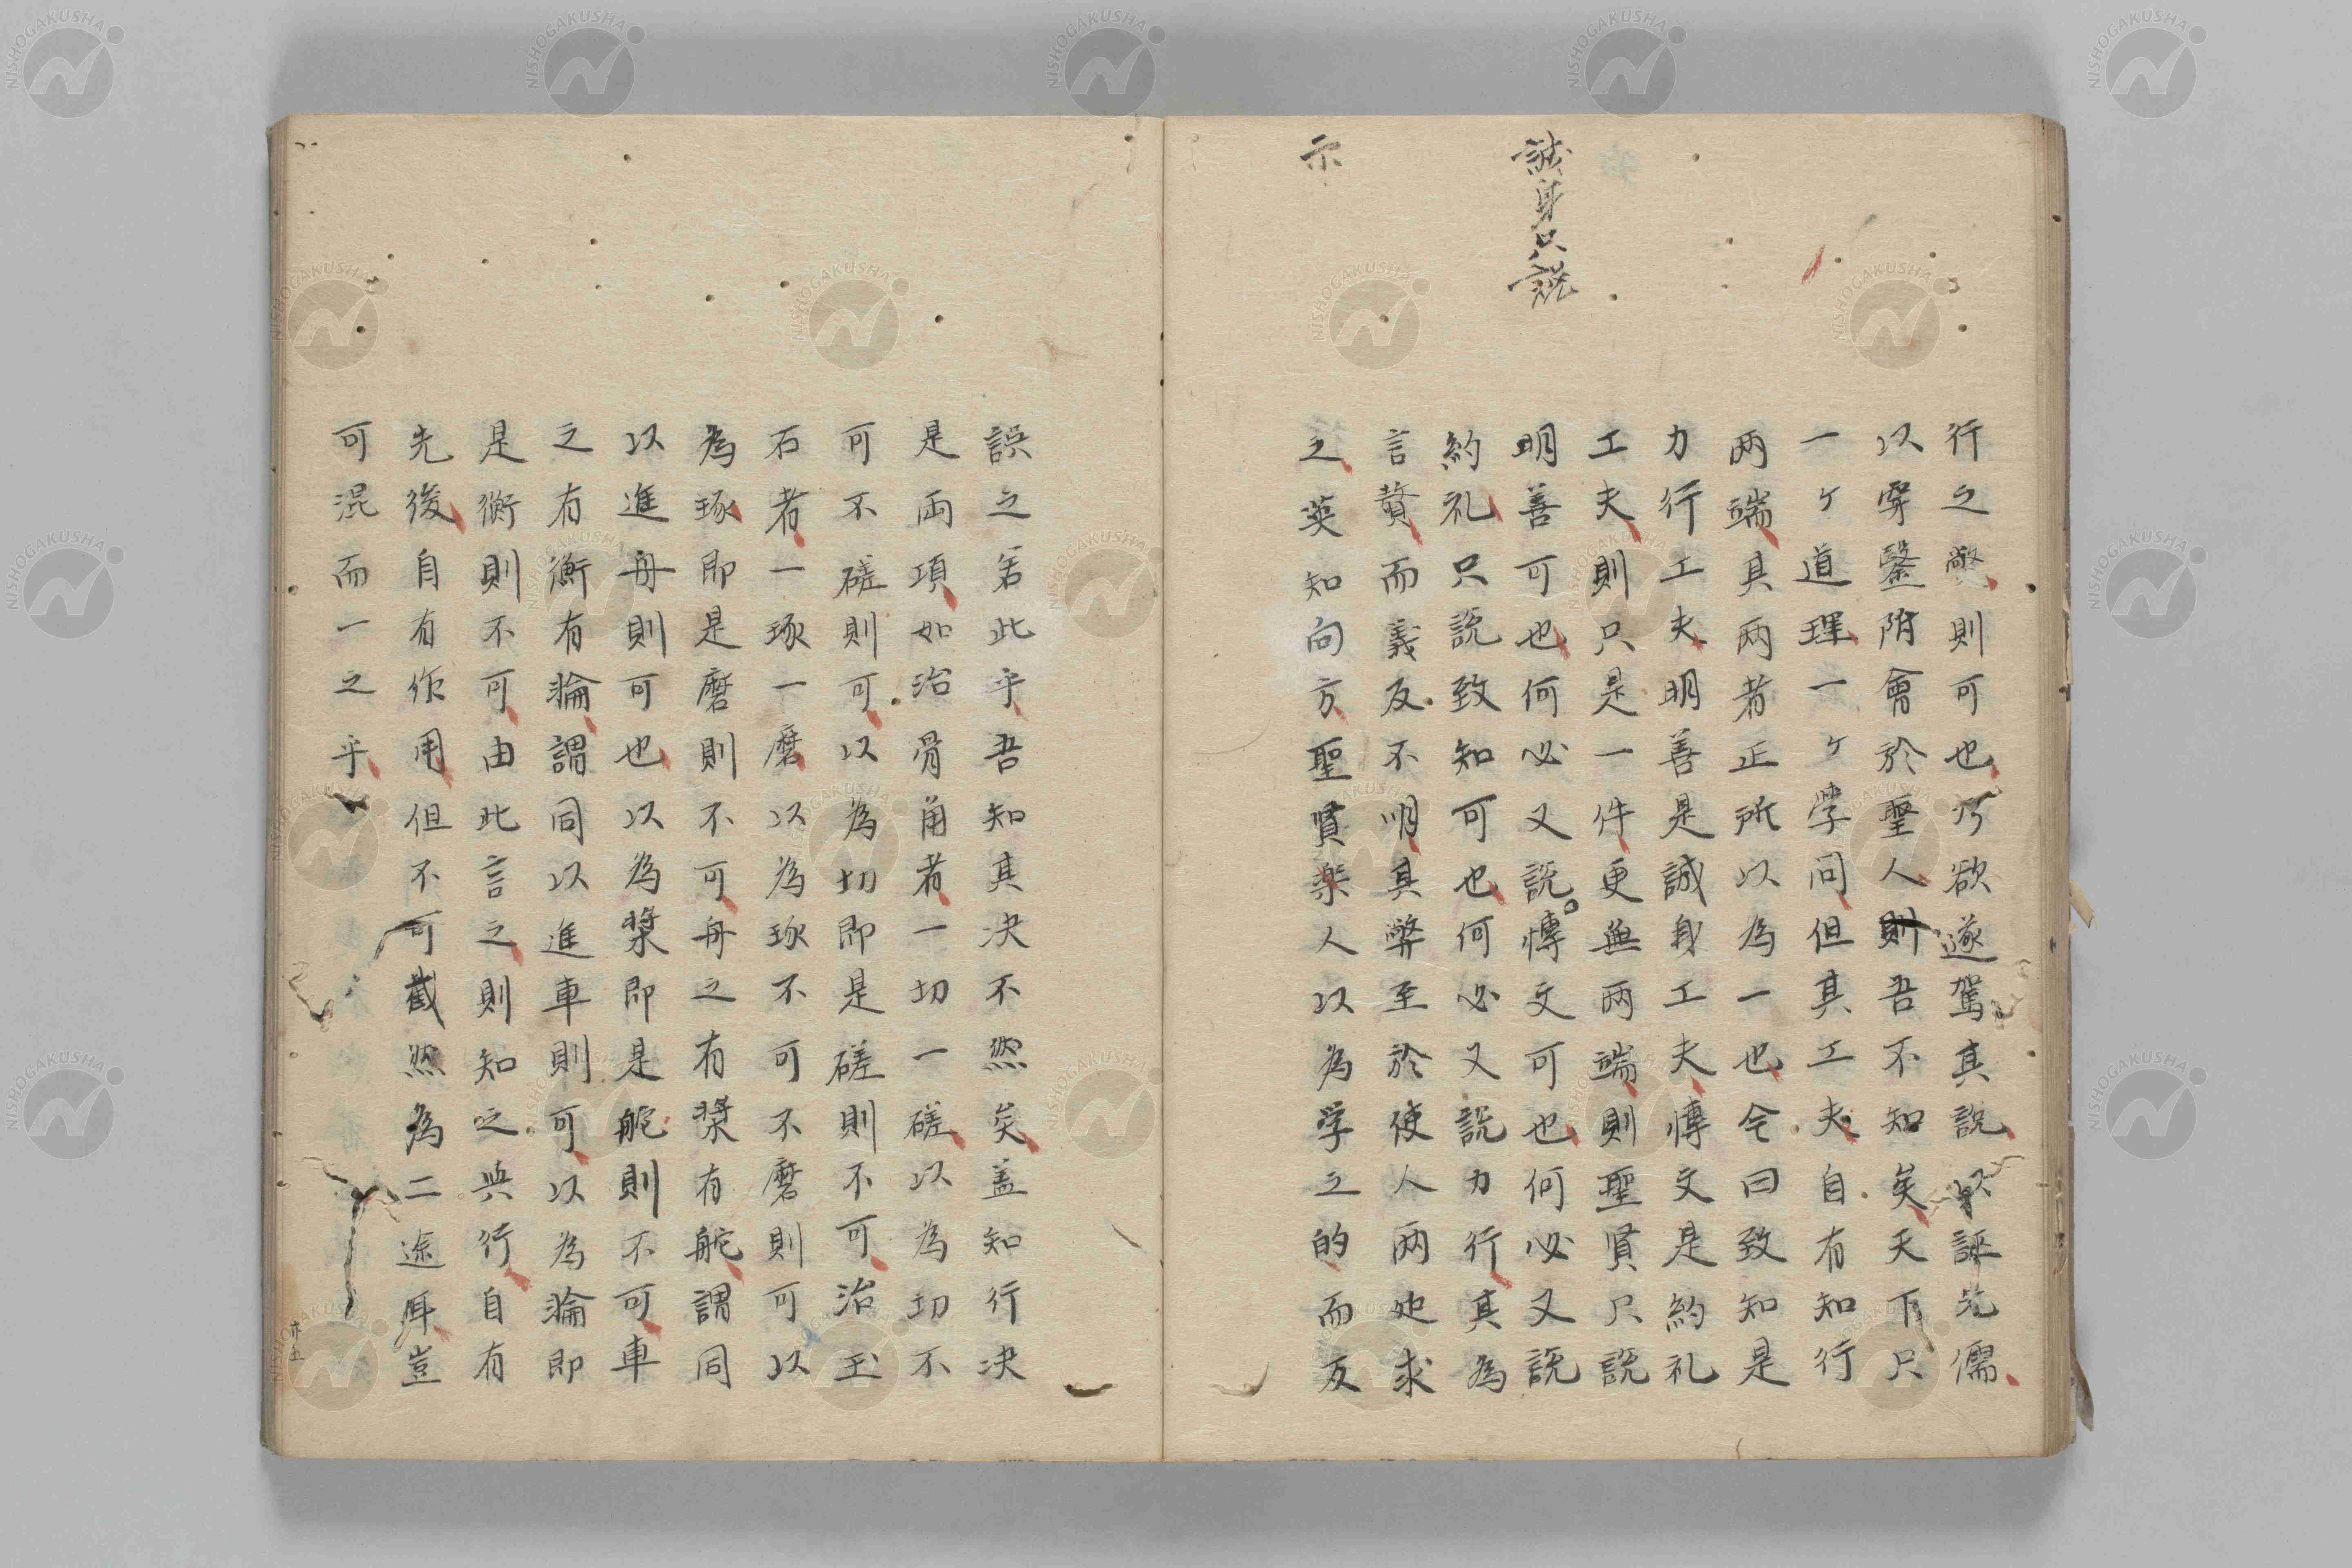 誠身只説
示
行之弊則可也乃欲遂駕其説以誣先儒
以穿鑿附會於聖人則吾不知矣天下只
一ケ道理一ケ学問但其工夫自有知行
兩端其兩者正所以為一也今曰致知是
力行工夫明善是誠身工夫慱文是約礼
工夫則只是一件更無兩端則聖賢只説
明善可也何必又説慱文可也何必又説
約礼只説致知可也何必又説力行其為
言贅而義反不明其弊至於使人兩処求
之莫知向方聖賢楽人以為学之的而反
誤之若此乎吾知其决不然矣盖知行决
是両項如治骨角者一切一磋以為切不
可不磋則可以為切即是磋則不可治玉
石者一琢一磨以為琢不可不磨則可以
為琢即是磨則不可舟之有槳有舵謂同
以進舟則可也以為槳即是舵則不可車
之有衡有輪謂同以進車則可以為輪即
是衡則不可由此言之則知之與行自有
先後自有作用但不可截然為二途耳豈
可混而一之乎
NISHOGAKUSHA